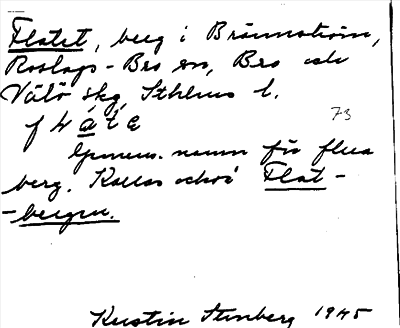 Flatet, berg i Brännström,
Roslags-Bro sn, Bro och
Välö skg, Sthlms l.
73
gemens. namn för flera
berg. Kallas också Flat-
-bergen.
Kerstin Stenberg 1945